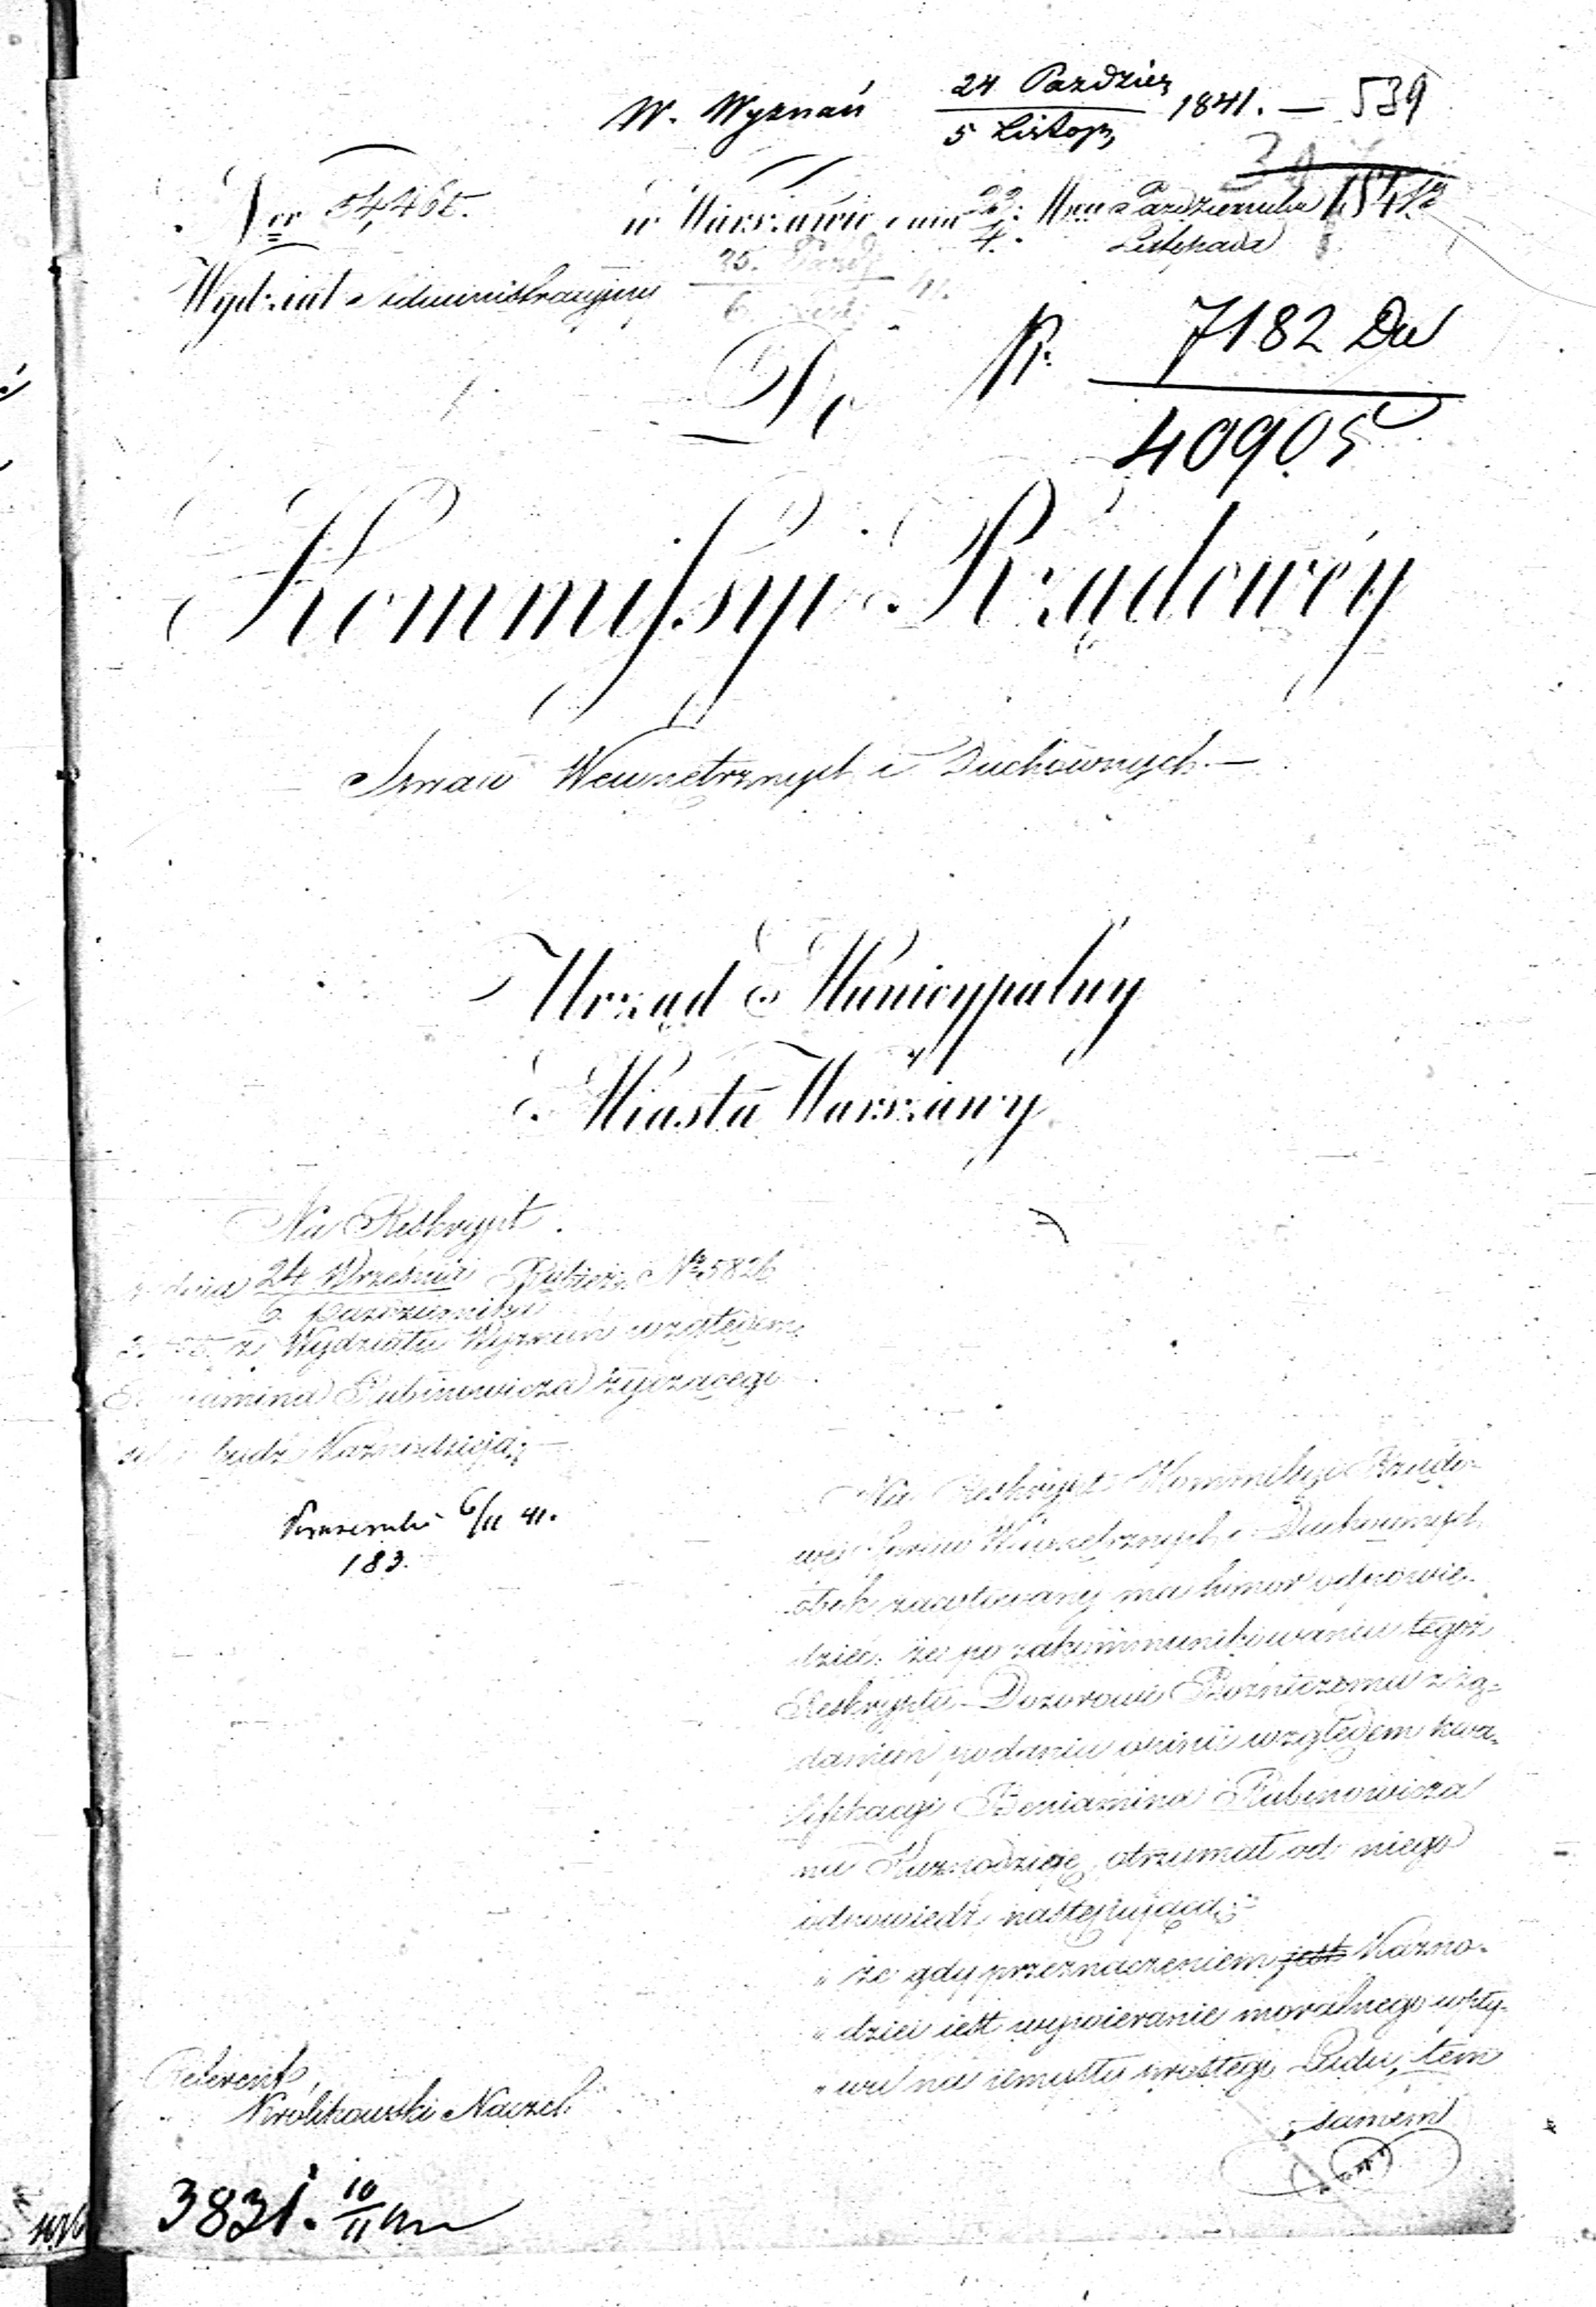 W. Wyznań 24 Paździer / 5 Listop 1841. — 539
Nr 54,465. w Warszawie dnia 23/4. Mca Października / Listopada 1841 r.
Wydział Administracyjny
25. Paźd / 6
Do
Pr. 7182 Du / 40905
Kommissyi Rządowéy
Spraw Wewnętrznych i Duchownych.—
Urząd Municypalny
Miasta Warszawy
Na Reskrypt
z dnia 24 Września / 6 Października Nr 5826
z Wydziału Wyznań względem
Beniamina Rubinowicza życzącego
bydź Kaznodzieją;—
6/11 41.
183.
Na Reskrypt Kommissyi Rządo-
wéj Spraw Wewnętrznych i Duchownych
obok zacytowany ma honor odpowie-
dzieć, że po zakommunikowaniu tegoż
Reskryptu Dozorowi Bożniczemu z żą-
daniem podania opinii względem kwa-
lifikacyi Beniamina Rubinowicza
na Kaznodzieję, otrzymał od niego
odpowiedź następującą:
„ że gdy przeznaczeniem jest Kazno-
„ dziei jest wywieranie moralnego wpły-
„ wu na umysły prostego Ludu, tem
„ samem
Referent,
Królikowski Naczel.
3831. 10/11